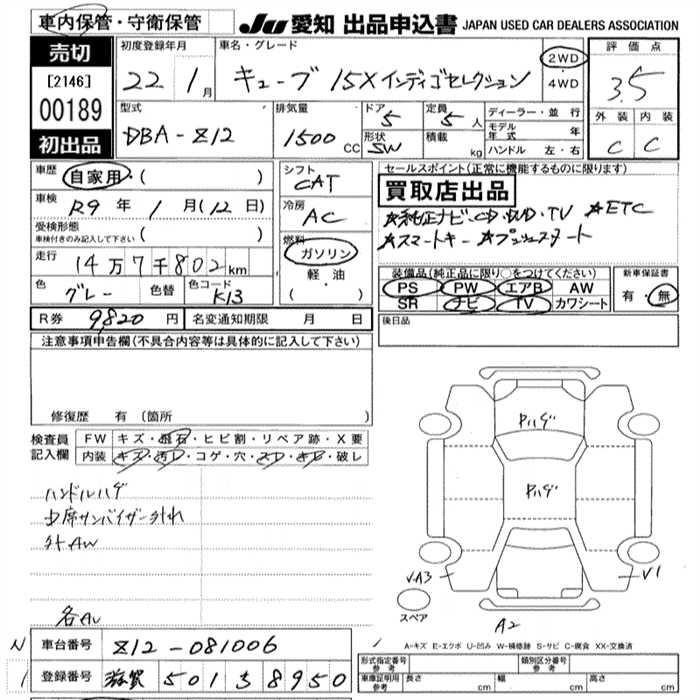 車内保管・守衛保管
JU 愛知 出品申込書 JAPAN USED CAR DEALERS ASSOCIATION
売切
[2146]
00189
初出品
初度登録年月
22 1月
車名・グレード
キューブ 15X インディゴセレクション
2WD
・
4WD
評価点
3.5
外装 内装
C C
型式
DBA-Z12
排気量
1500 CC
ドア 5
形状 SW
定員 5 人
積載 kg
ディーラー・並行
モデル年式 年
ハンドル 左・右
車歴 自家用 ( )
車検 R9 年 1 月 (12 日)
受検形態
車検付きのみ記入して下さい ( )
走行 14万7千802km
色 グレー 色替 色コード K13
シフト
CAT
冷房
AC
燃料
ガソリン
軽・油
( ・ )
セールスポイント(正常に機能するものに限り)
買取店出品
★純正ナビ・CD・DVD・TV ★ETC
★スマートキー ★プッシュスタート
装備品(純正品に限り○をつけてください)
PS PW エアB AW
SR ナビ TV カワシート
新車保証書
有・無
R券 9820 円 名変通知期限 月 日
後日品
注意事項申告欄(不具合内容等は具体的に記入して下さい)
修復歴 有 (箇所 )
検査員記入欄
FW キズ・飛石・ヒビ割・リペア跡・X要
内装 キズ・汚レ・コゲ・穴・スレ・キレ・破レ
ハンドルハゲ
サンバイザー外れ
外AW
各AU
Pハゲ
Pハゲ
V.A3
V1
A2
スペア
A-キズ E-エクボ U-凹み W-補修跡 S-サビ C-腐食 XX-交換済
N
1
車台番号 Z12-081006
登録番号 滋賀 501 3 8950
形式指定番号 参考
類別区分番号 参考
車庫証明用 参考 長さ cm 幅 cm 高さ cm